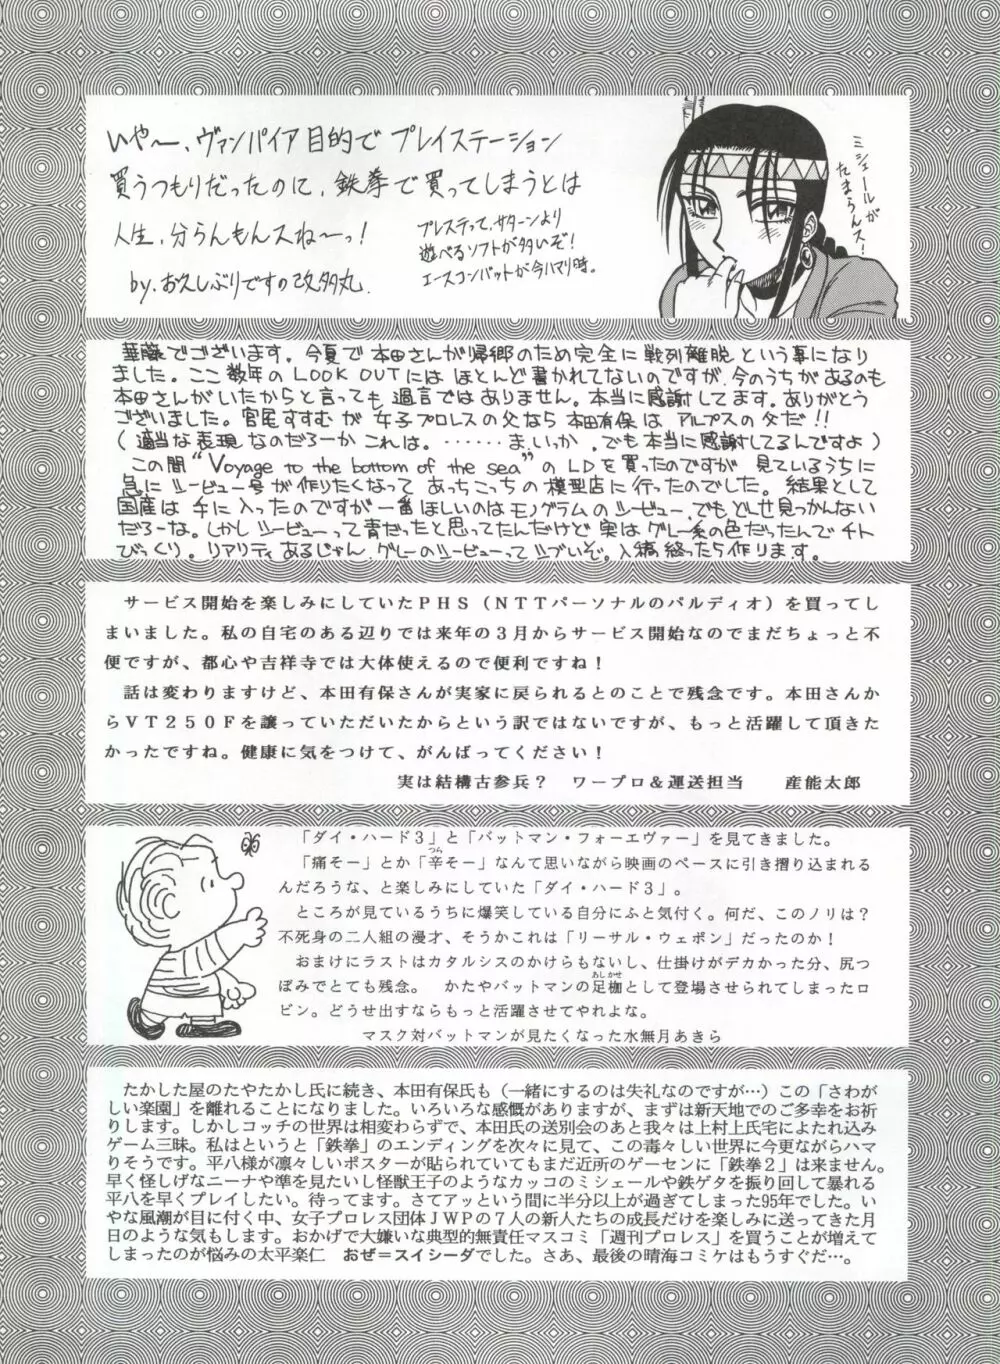 いや〜、ヴァンパイア目的でプレイステーション
買うつもりだったのに、鉄拳で買ってしまうとは
人生、分らんもんスね〜っ!
by、お久しぶりですの改多丸
プレステって、サターンより
遊べるソフトが多いぞ!
エースコンバットが今ハマり時。
ミシェールが
たまらんス!
華藤でございます。今夏で本田さんが帰郷のため完全に戦列離脱という事になり
ました。ここ数年のLOOK OUTにはほとんど書かれてないのですが、今のうちがあるのも
本田さんがいたからと言っても過言ではありません。本当に感謝してます。ありがとう
ございました。宮尾すすむが女子プロレスの父なら本田有保はアルプスの父だ!!
(適当な表現なのだろーかこれは。……ま、いっか。でも本当に感謝してるんですよ)
この間“Voyage to the bottom of the sea”のLDを買ったのですが見ているうちに
急にシービュー号が作りたくなってあっちこっちの模型店に行ったのでした。結果として
国産は手に入ったのですが一番ほしいのはモノグラムのシービュー、でもどしせ見つかんない
だろーな。しかしシービューって青だったと思ってたんだけど実はグレー系の色だったんでチト
びっくり。リアリティあるじゃん、グレーのシービューってシブいぞ。入稿終ったら作ります。
サービス開始を楽しみにしていたPHS(NTTパーソナルのパルディオ)を買ってし
まいました。私の自宅のある辺りでは来年の3月からサービス開始なのでまだちょっと不
便ですが、都心や吉祥寺では大体使えるので便利ですね!
話は変わりますけど、本田有保さんが実家に戻られるとのことで残念です。本田さんか
らVT250Fを譲っていただいたからという訳ではないですが、もっと活躍して頂きた
かったですね。健康に気をつけて、がんばってください!
実は結構古参兵? ワープロ&運送担当 産能太郎
「ダイ・ハード3」と「バットマン・フォーエヴァー」を見てきました。
「痛そー」とか「辛そー」なんて思いながら映画のペースに引き摺り込まれる
つら
んだろうな、と楽しみにしていた「ダイ・ハード3」。
ところが見ているうちに爆笑している自分にふと気付く。何だ、このノリは?
不死身の二人組の漫才、そうかこれは「リーサル・ウェポン」だったのか!
おまけにラストはカタルシスのかけらもないし、仕掛けがデカかった分、尻つ
ぼみでとても残念。 かたやバットマンの足枷として登場させられてしまったロ
あしかせ
ビン。どうせ出すならもっと活躍させてやれよな。
マスク対バットマンが見たくなった水無月あきら
たかした屋のたやたかし氏に続き、本田有保氏も(一緒にするのは失礼なのですが…)この「さわが
しい楽園」を離れることになりました。いろいろな感慨がありますが、まずは新天地でのご多幸をお祈
りします。しかしコッチの世界は相変わらずで、本田氏の送別会のあと我々は上村上氏宅によたれ込み
ゲーム三昧。私はというと「鉄拳」のエンディングを次々に見て、この毒々しい世界に今更ながらハマ
りそうです。平八様が凛々しいポスターが貼られていてもまだ近所のゲーセンに「鉄拳2」は来ません。
早く怪しげなニーナや準を見たいし怪獣王子のようなカッコのミシェールや鉄ゲタを振り回して暴れる
平八を早くプレイしたい。待ってます。さてアッという間に半分以上が過ぎてしまった95年でした。い
やな風潮が目に付く中、女子プロレス団体JWPの7人の新人たちの成長だけを楽しみに送ってきた月
日のような気もします。おかげで大嫌いな典型的無責任マスコミ「週刊プロレス」を買うことが増えて
しまったのが悩みの太平楽仁 おぜ=スイシーダでした。さあ、最後の晴海コミケはもうすぐだ…。